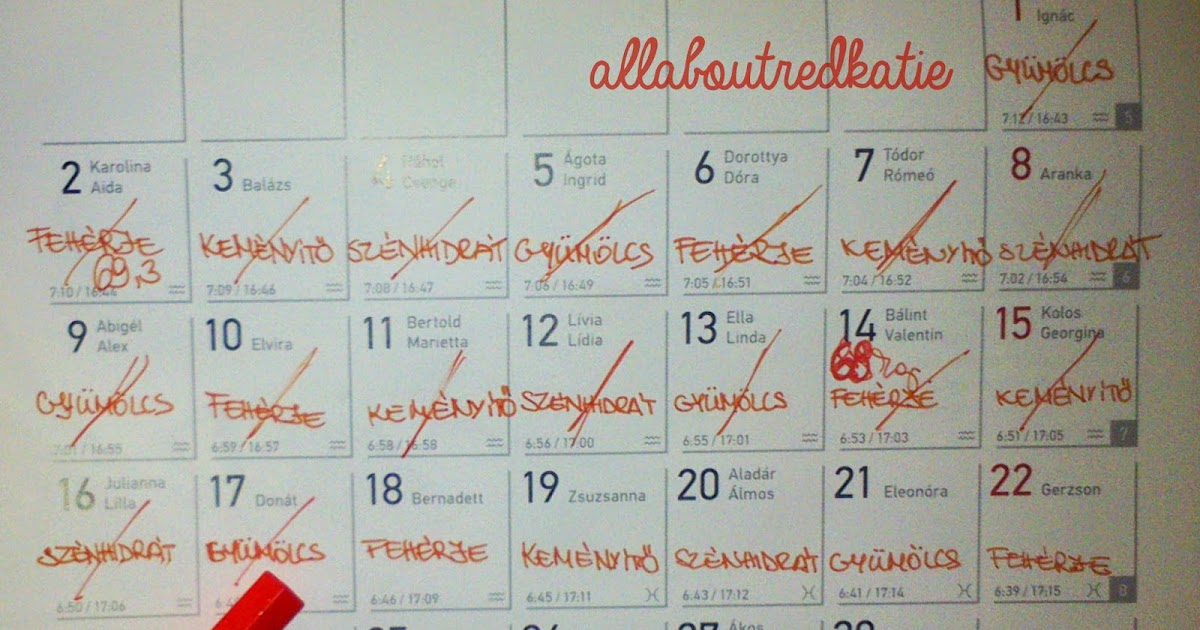 allaboutredkatie
1 Ignác
GYÜMÖLCS
7:12 / 16:43 5
2 Karolina Aida
FEHÉRJE
69,3
7:10 / 16:44
3 Balázs
KEMÉNYÍTŐ
7:09 / 16:46
4 Ráhel Csenge
SZÉNHIDRÁT
7:08 / 16:47
5 Ágota Ingrid
GYÜMÖLCS
7:06 / 16:49
6 Dorottya Dóra
FEHÉRJE
7:05 / 16:51
7 Tódor Rómeó
KEMÉNYÍTŐ
7:04 / 16:52
8 Aranka
SZÉNHIDRÁT
7:02 / 16:54 6
9 Abigél Alex
GYÜMÖLCS
7:01 / 16:55
10 Elvira
FEHÉRJE
6:59 / 16:57
11 Bertold Marietta
KEMÉNYÍTŐ
6:58 / 16:58
12 Lívia Lídia
SZÉNHIDRÁT
6:56 / 17:00
13 Ella Linda
GYÜMÖLCS
6:55 / 17:01
14 Bálint Valentin
68
FEHÉRJE
6:53 / 17:03
15 Kolos Georgina
KEMÉNYÍTŐ
6:51 / 17:05 7
16 Julianna Lilla
SZÉNHIDRÁT
6:50 / 17:06
17 Donát
GYÜMÖLCS
18 Bernadett
FEHÉRJE
6:46 / 17:09
19 Zsuzsanna
KEMÉNYÍTŐ
6:45 / 17:11
20 Aladár Álmos
SZÉNHIDRÁT
6:43 / 17:12
21 Eleonóra
GYÜMÖLCS
6:41 / 17:14
22 Gerzson
FEHÉRJE
6:39 / 17:15 8
Ákos